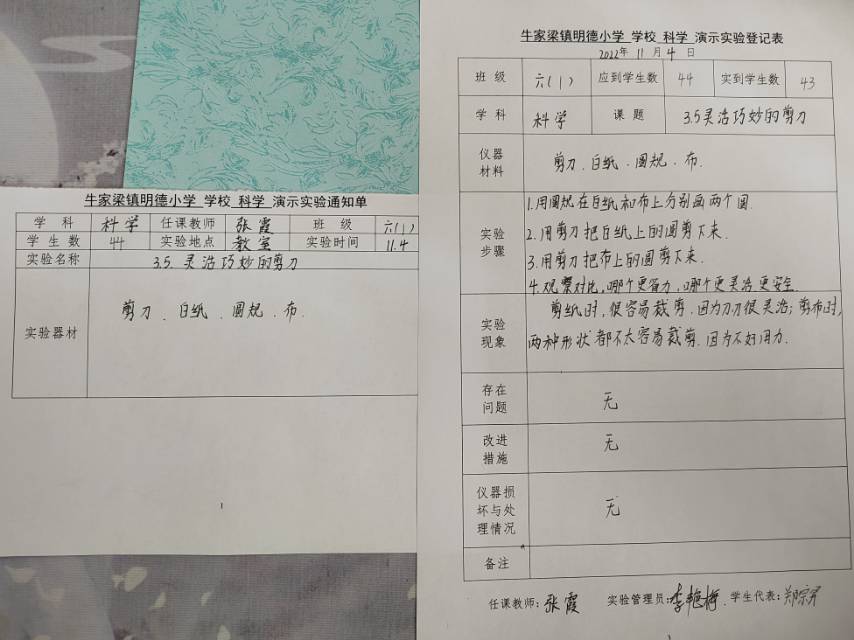 牛家梁镇明德小学 学校 科学 演示实验通知单
学 科 科学 任课教师 张霞 班 级 六(1)
学 生 数 44 实验地点 教室 实验时间 11.4
实验名称 3.5.灵活巧妙的剪刀
实验器材 剪刀、白纸、圆规、布.
牛家梁镇明德小学 学校 科学 演示实验登记表
2022年 11 月 4 日
班 级 六(1) 应到学生数 44 实到学生数 43
学 科 科学 课 题 3.5灵活巧妙的剪刀
仪器
材料
剪刀、白纸、圆规、布.
实验
步骤
1.用圆规在白纸和布上分别画两个圆.
2.用剪刀把白纸上的圆剪下来.
3.用剪刀把布上的圆剪下来.
4.观察对比,哪个更省力,哪个更灵活更安全.
实验
现象
剪纸时,很容易裁剪.因为刀刃很灵活;剪布时,
两种形状都不太容易裁剪.因为不好用力.
存在
问题
无
改进
措施
无
仪器损
坏与处
理情况
无
备注
任课教师:张霞 实验管理员:李艳梅 学生代表: